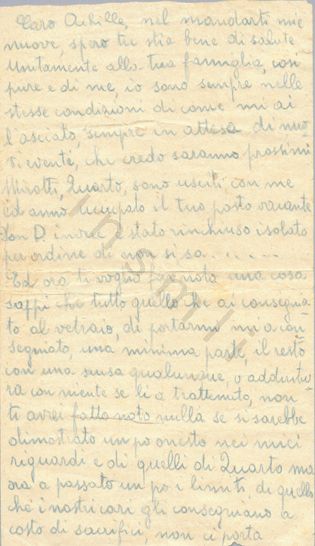 Caro Achille, nel mandarti mie
nuove, spero tu stia bene di salute
Unitamente alla tua famiglia, così
pure è di me, io sono sempre nelle
stesse condizioni di come mi ai
l'asciato, sempre in attesa di nuo-
vi eventi, che credo saranno prossimi
Mirotti, Quarto, sono usciti con me
ed anno occupato il tuo posto vacante
Don D. invece è stato rinchiuso isolato
per ordine di non si sa.....
Ed ora ti voglio far nota una cosa
sappi che tutto quello che ai consegna-
to al vetraio, di portarmi mi a con-
segniato, una minima parte, il resto
con una scusa qualunque, o addiritu-
ra con niente se li a trattenuto, non
ti avrei fatto noto nulla se si sarebbe
dimostrato un po onesto nei miei
riguardi e di quelli di Quarto ma
ora a passato un po i limiti, di quello
che i nostri cari gli consegnano a
costo di sacrifici, non ci porta